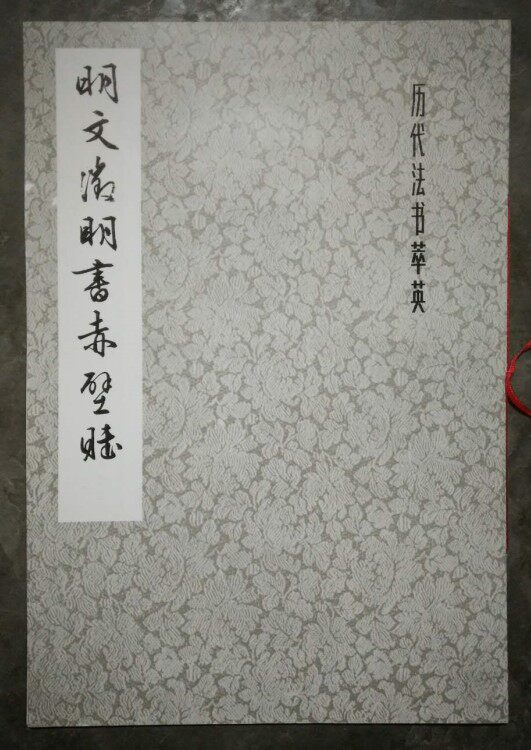 历代法书萃英
明文徵明書赤壁賦